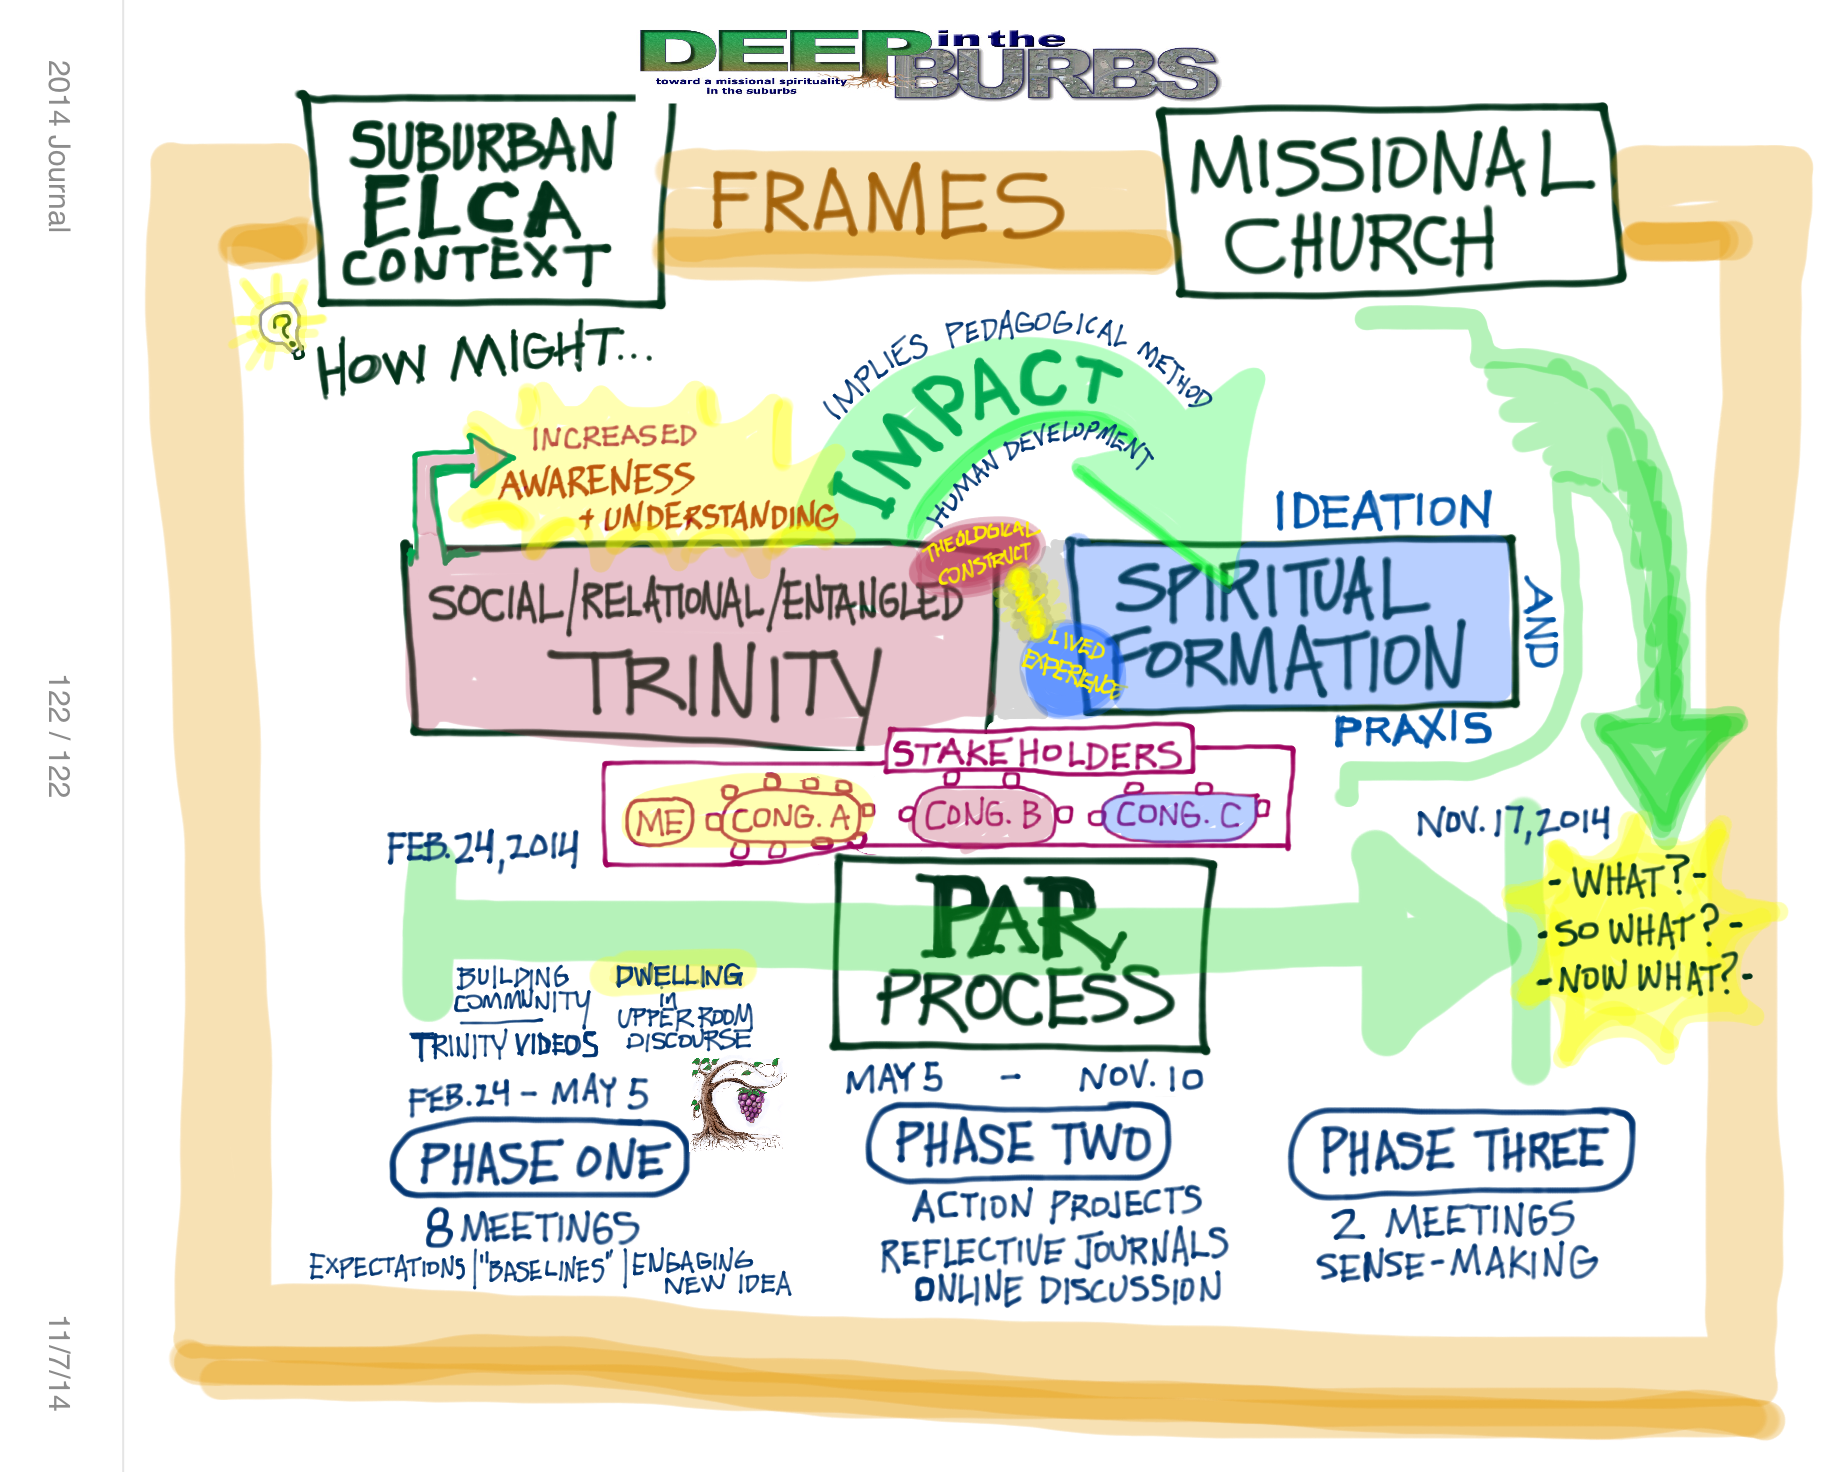 2014 Journal
122 / 122
11/7/14
DEEP in the BURBS
toward a missional spirituality
in the suburbs
SUBURBAN
ELCA
CONTEXT
FRAMES
MISSIONAL
CHURCH
?
HOW MIGHT...
IMPLIES PEDAGOGICAL METHOD
IMPACT
HUMAN DEVELOPMENT
INCREASED
AWARENESS
+ UNDERSTANDING
THEOLOGICAL
CONSTRUCT
LIVED
EXPERIENCE
SOCIAL/RELATIONAL/ENTANGLED
TRINITY
IDEATION
SPIRITUAL
FORMATION
AND
PRAXIS
STAKEHOLDERS
ME
CONG. A
CONG. B
CONG. C
FEB. 24, 2014
NOV. 17, 2014
PAR
PROCESS
- WHAT? -
- SO WHAT? -
- NOW WHAT? -
BUILDING
COMMUNITY
TRINITY VIDEOS
DWELLING
in
UPPER ROOM
DISCOURSE
FEB. 24 - MAY 5
PHASE ONE
8 MEETINGS
EXPECTATIONS | "BASELINES" | ENGAGING
NEW IDEA
MAY 5 - NOV. 10
PHASE TWO
ACTION PROJECTS
REFLECTIVE JOURNALS
ONLINE DISCUSSION
PHASE THREE
2 MEETINGS
SENSE-MAKING